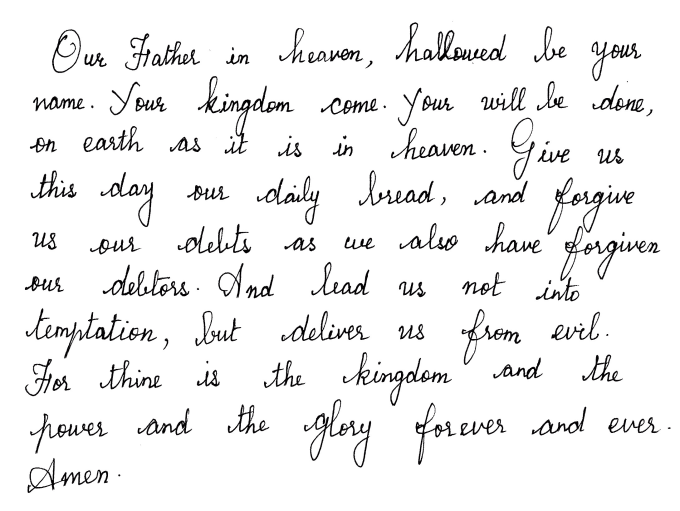 Our Father in heaven, hallowed be your
name. Your kingdom come. Your will be done,
on earth as it is in heaven. Give us
this day our daily bread, and forgive
us our debts as we also have forgiven
our debtors. And lead us not into
temptation, but deliver us from evil.
For thine is the kingdom and the
power and the glory forever and ever.
Amen.